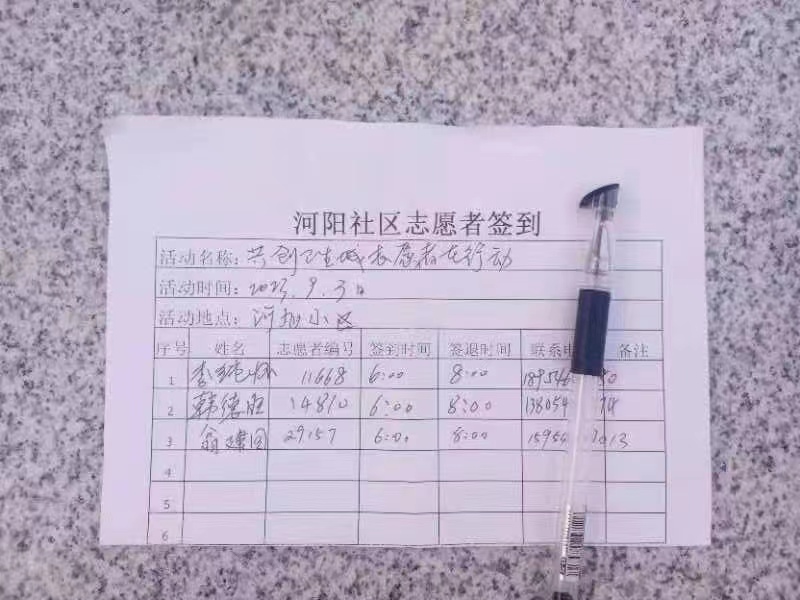 河阳社区志愿者签到
活动名称：共创卫生城志愿者在行动
活动时间：2023.9.3日
活动地点：河阳小区
序号 姓名 志愿者编号 签到时间 签退时间 联系电 备注
1 李 11668 6:00 8:00
2 韩德胜 14810 6:00 8:00 138054
3 翁建国 29157 6:00 8:00 15954 013
4
5
6